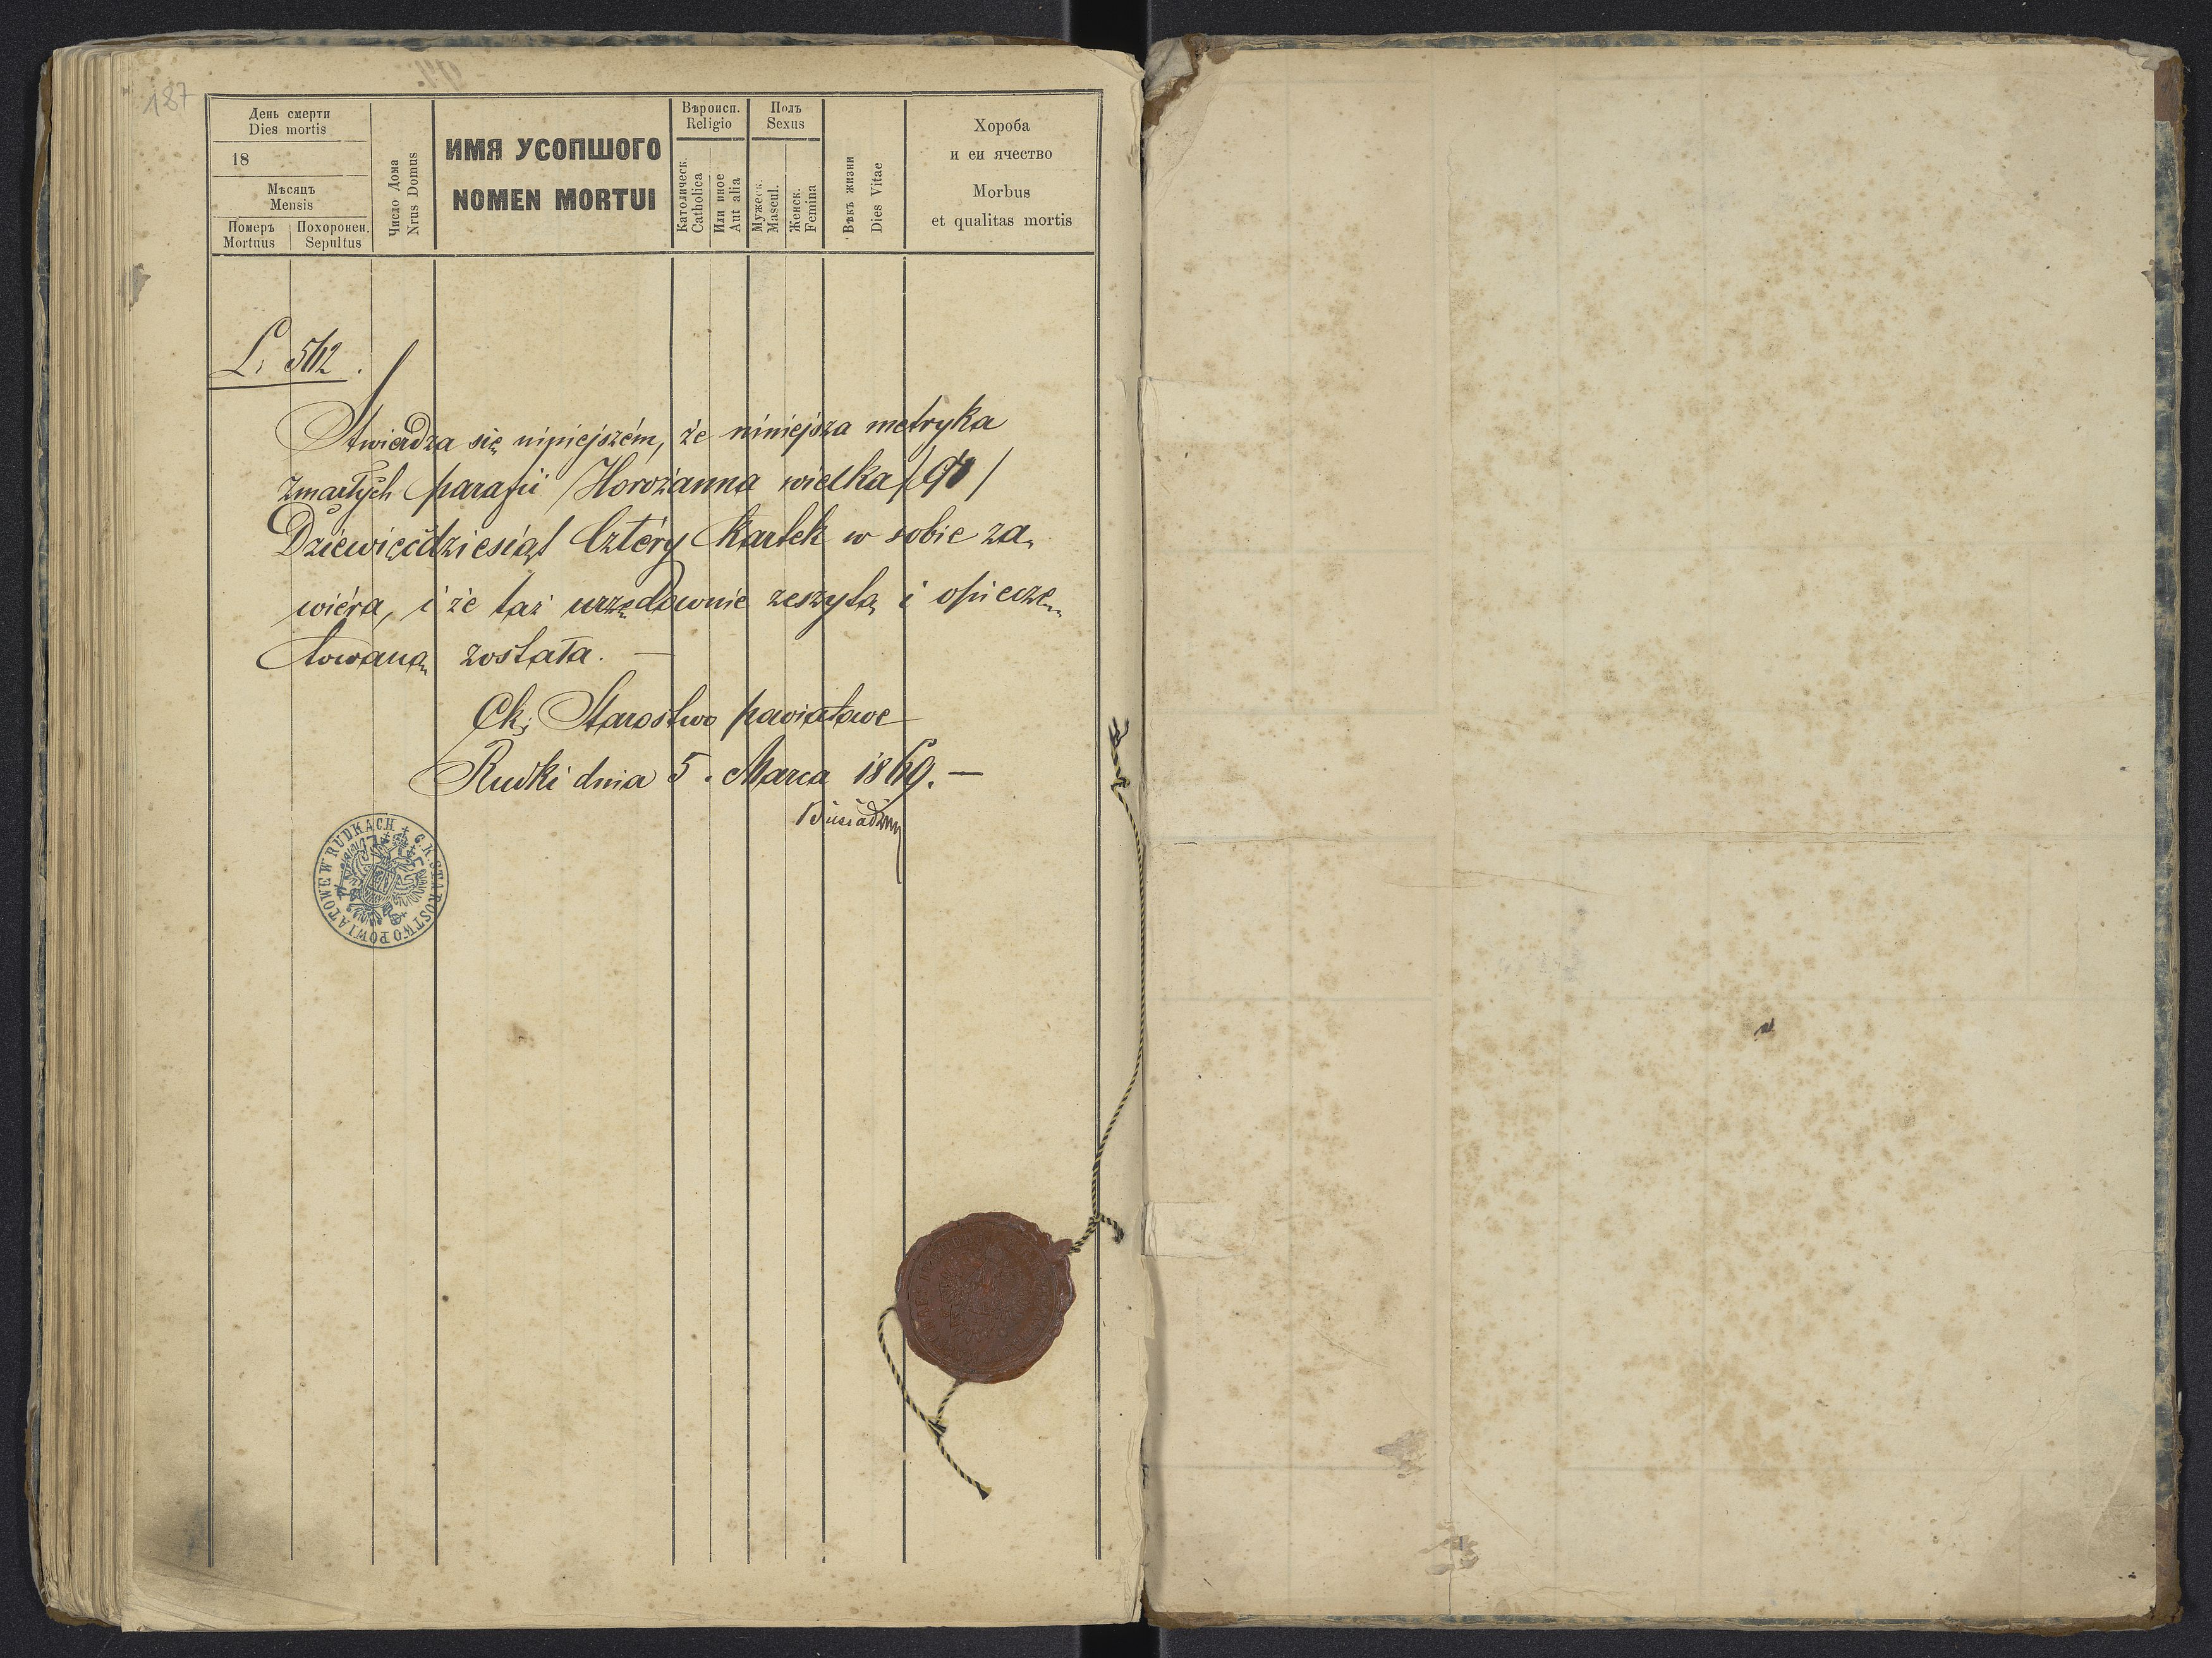 187
День смерти
Dies mortis
18
Мѣсяцъ
Mensis
Померъ
Mortuus
Похоронен.
Sepultus
Число Дома
Nrus Domus
ИМЯ УСОПШОГО
NOMEN MORTUI
Вѣроисп.
Religio
Католическ.
Catholica
Или иное
Aut alia
Полъ
Sexus
Мужеск.
Mascul.
Женск.
Femina
Вѣкъ жизни
Dies Vitae
Хороба
и еи ячество
Morbus
et qualitas mortis
L. 562.
Stwierdza się niniejszém, że niniejsza metryka
zmarłych parafii Horożanna wielka /94/
Dziewięćdziesiąt Cztéry Kartek w sobie za„
wiéra, i że taż urzędownie zeszytą i opieczę„
towaną została. —
Ck; Starostwo powiatowe
Rudki dnia 5. Marca 1869. —
C. K. STAROSTWO POWIATOWE W RUDKACH